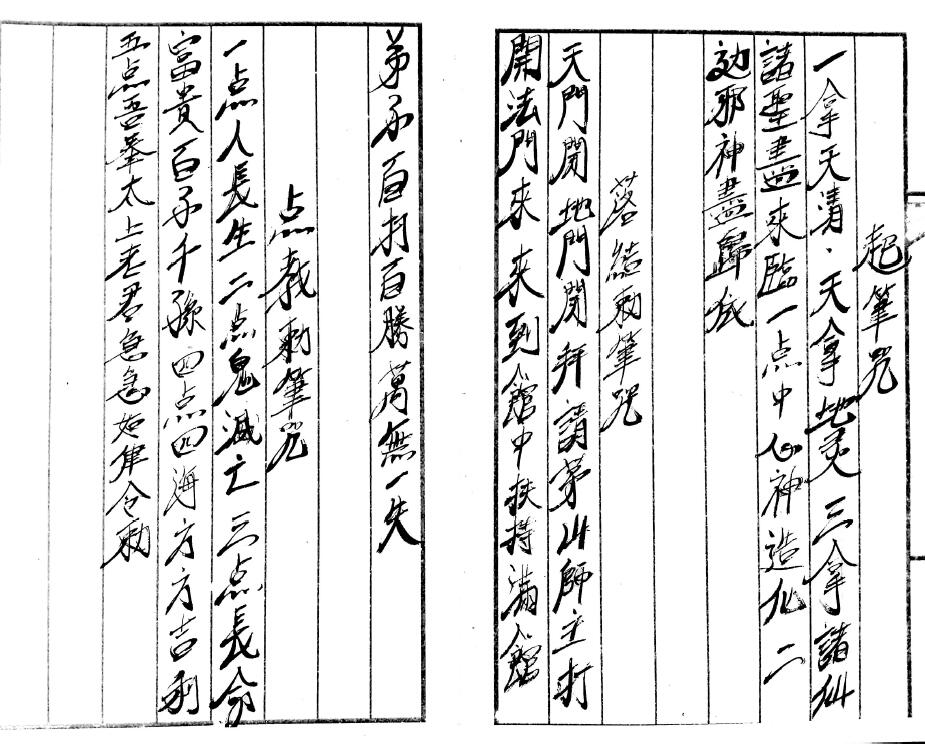 起筆咒
一拿天清·天拿地灵三拿諸仙
諸聖盡來臨一点中心神造化二
边邪神盡歸依
落結敕筆咒
天門開地門開拜請茅山師主打
開法門來來到館中扶持滿館
弟子百打百勝萬無一失
点教敕筆咒
一点人長生二点鬼滅亡三点長命
富貴百子千孫四点四海方方吉利
五点吾奉太上老君急急如律令敕